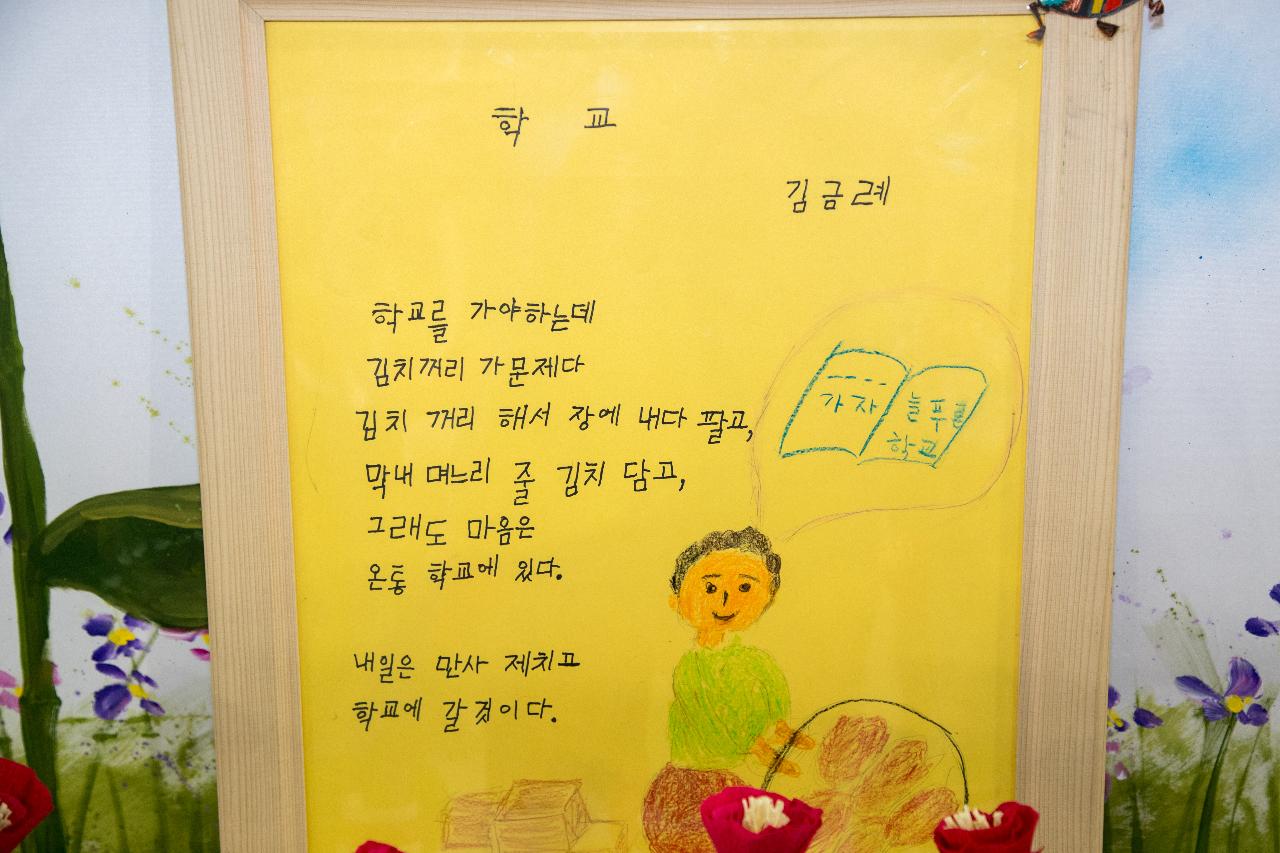 학 교
김금례
학교를 가야하는데
김치꺼리 가 문제다
김치 꺼리 해서 장에 내다 팔고,
막내 며느리 줄 김치 담고,
그래도 마음은
온통 학교에 있다.
내일은 만사 제치고
학교에 갈것이다.
가자
늘푸를
학교